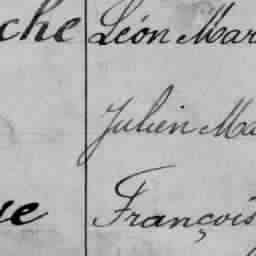 che Léon Mar
Julien Ma
ue François